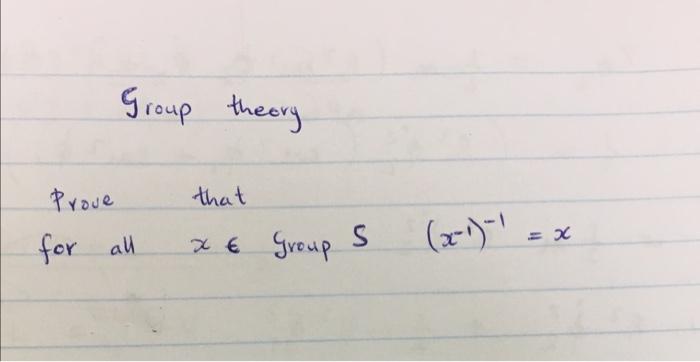 Group theory
Prove that
for all x ∈ Group S (x⁻¹)⁻¹ = x